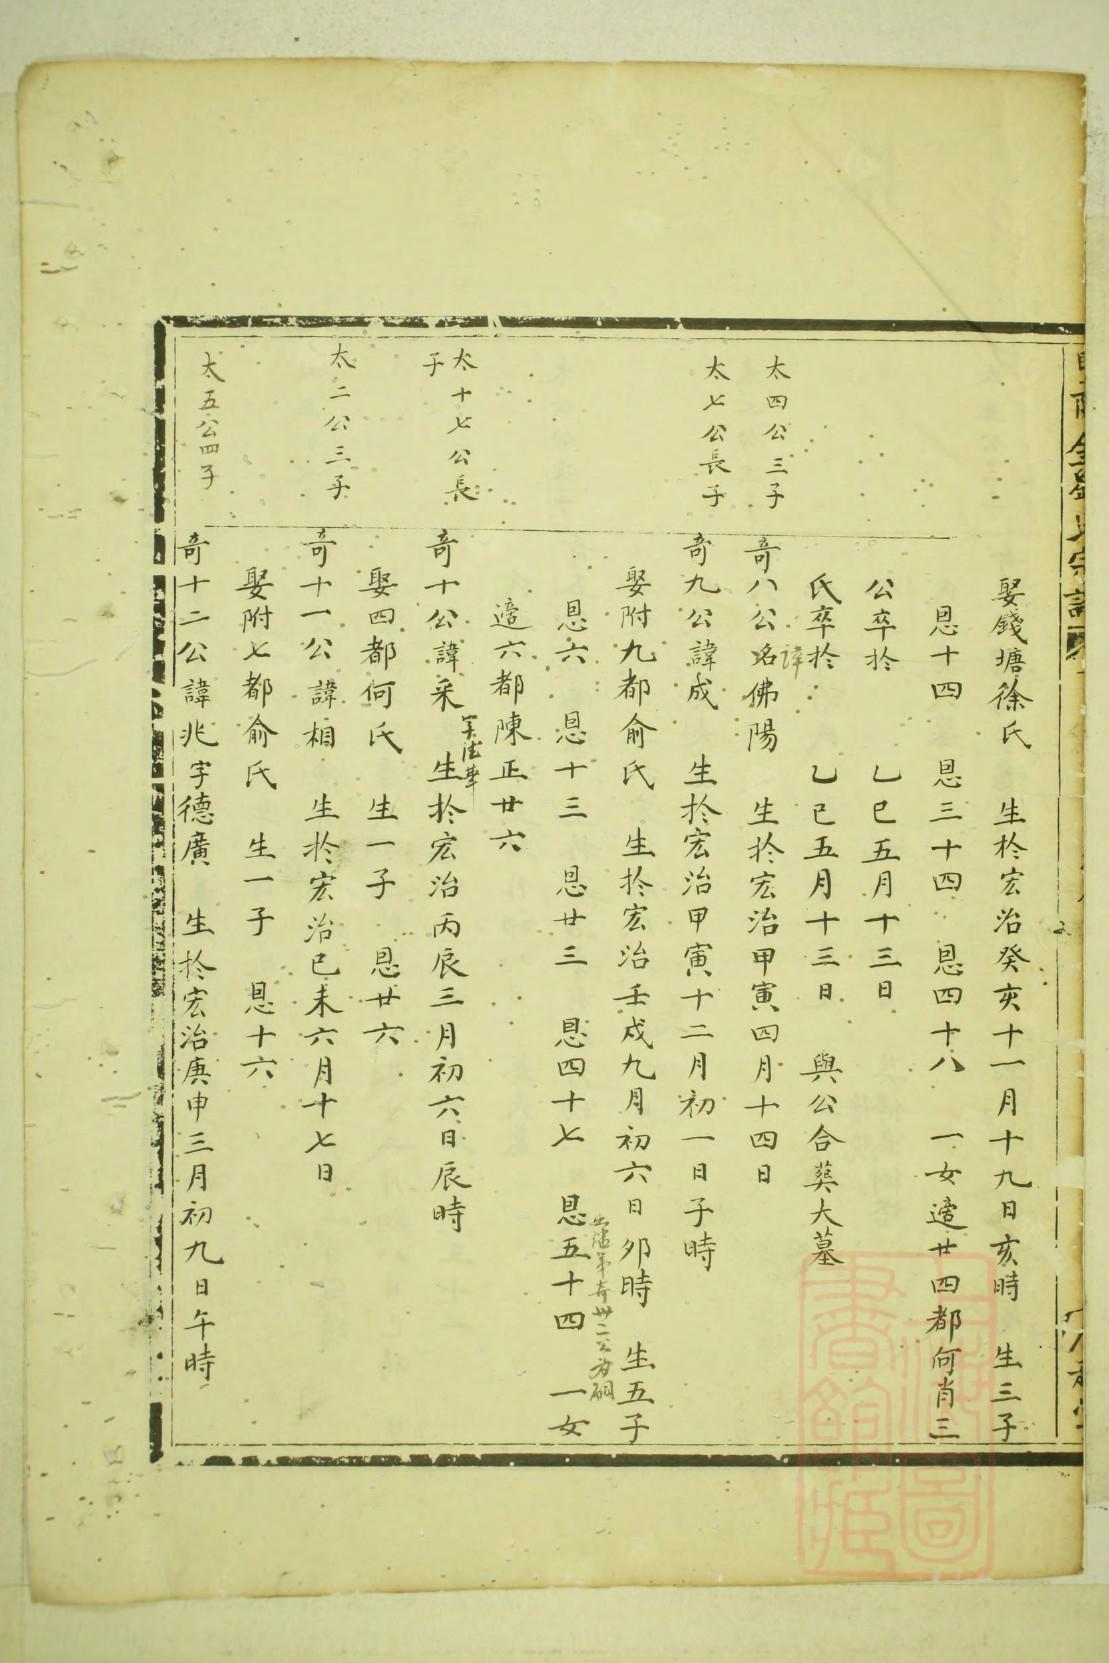 娶錢塘徐氏　生於宏治癸亥十一月十九日亥時　生三子
恩十四　恩三十四　恩四十八　一女適廿四都何肖三
公卒於　乙巳五月十三日
氏卒於　乙巳五月十三日　與公合葬大墓
太四公三子
奇八公名佛陽　生於宏治甲寅四月十四日
諱
太七公長子
奇九公諱成　生於宏治甲寅十二月初一日子時
娶附九都俞氏　生於宏治壬戌九月初六日卯時　生五子
恩六　恩十三　恩廿三　恩四十七　恩五十四　一女
奇卅二公為嗣
適六都陳正廿六
太十七公長子
奇十公諱采　生於宏治丙辰三月初六日辰時
娶四都何氏　生一子　恩廿六
太二公三子
奇十一公諱相　生於宏治己未六月十七日
娶附七都俞氏　生一子　恩十六
太五公四子
奇十二公諱兆字德廣　生於宏治庚申三月初九日午時